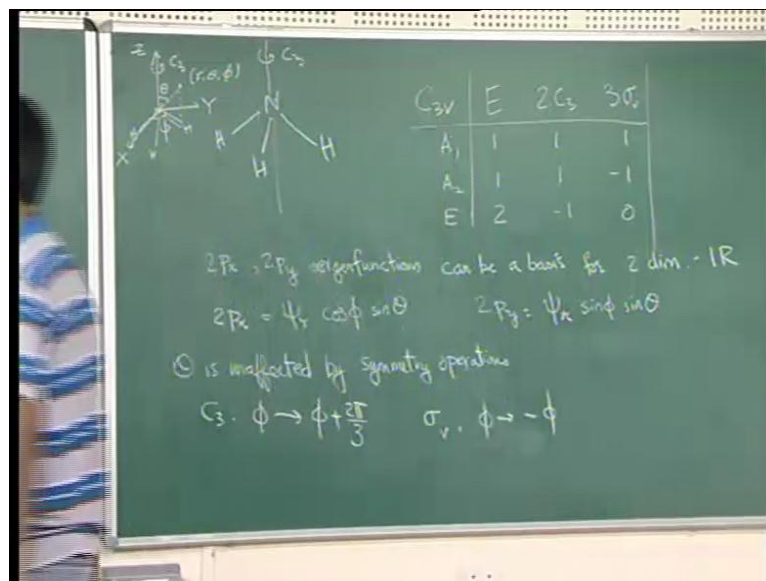 Z C₃ (r, θ, φ)
θ
Y
φ
X
C₃
N
H H H
C₃ᵥ E 2C₃ 3σᵥ
A₁ 1 1 1
A₂ 1 1 -1
E 2 -1 0
2Pₓ, 2Py eigenfunctions can be a basis for 2 dim. - IR
2Pₓ = Ψᵣ cosφ sinθ 2Py = Ψᵣ sinφ sinθ
is unaffected by symmetry operations
C₃. φ → φ + 2π/3 σᵥ. φ → -φ